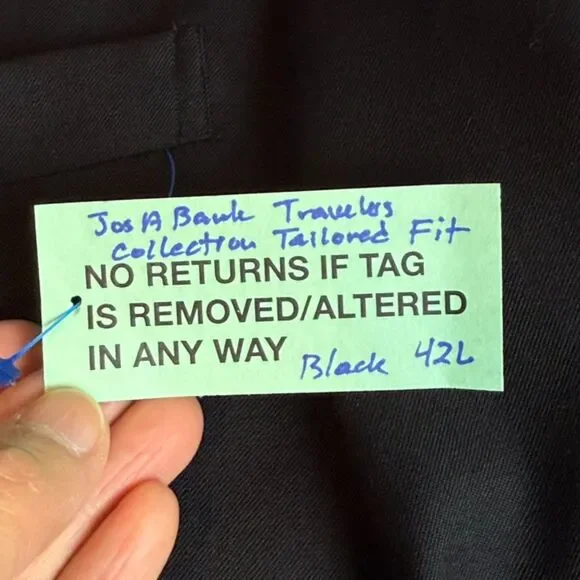 Jos A Bank Travelers
Collection Tailored Fit
NO RETURNS IF TAG
IS REMOVED/ALTERED
IN ANY WAY
Black 42L